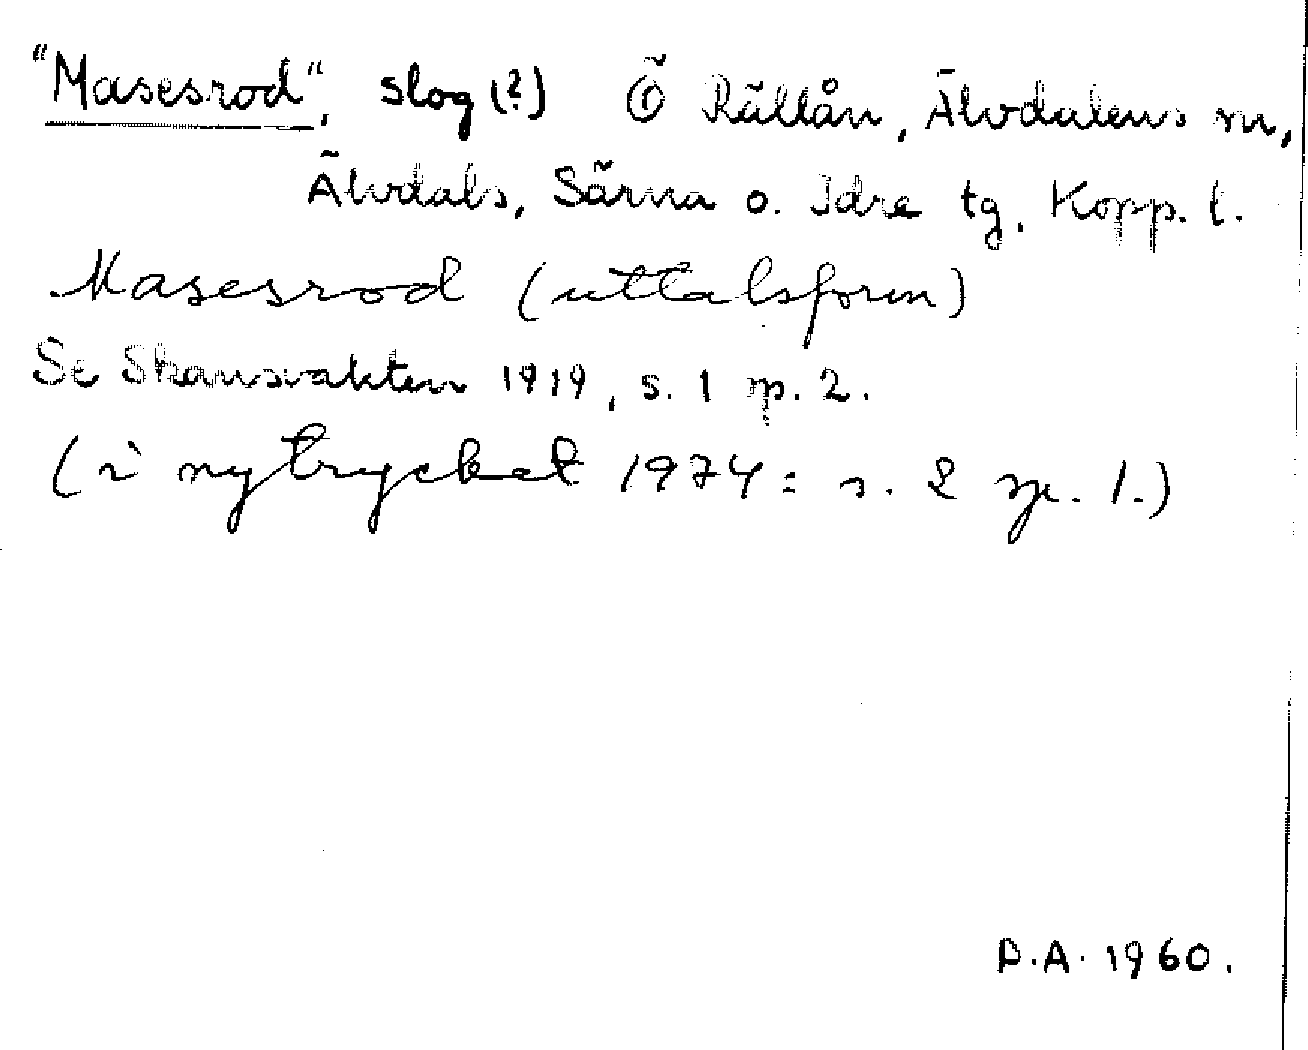 "Masesrod", slog (?) Ö Rällån, Älvdalens sn,
Älvdals, Särna o. Idre tg. Kopp. l.
Masesrod (uttalsform)
Se Skansvakten 1919, s. 1 sp. 2.
(i nytrycket 1974: s. 2 sp. 1.)
D.A. 1960.